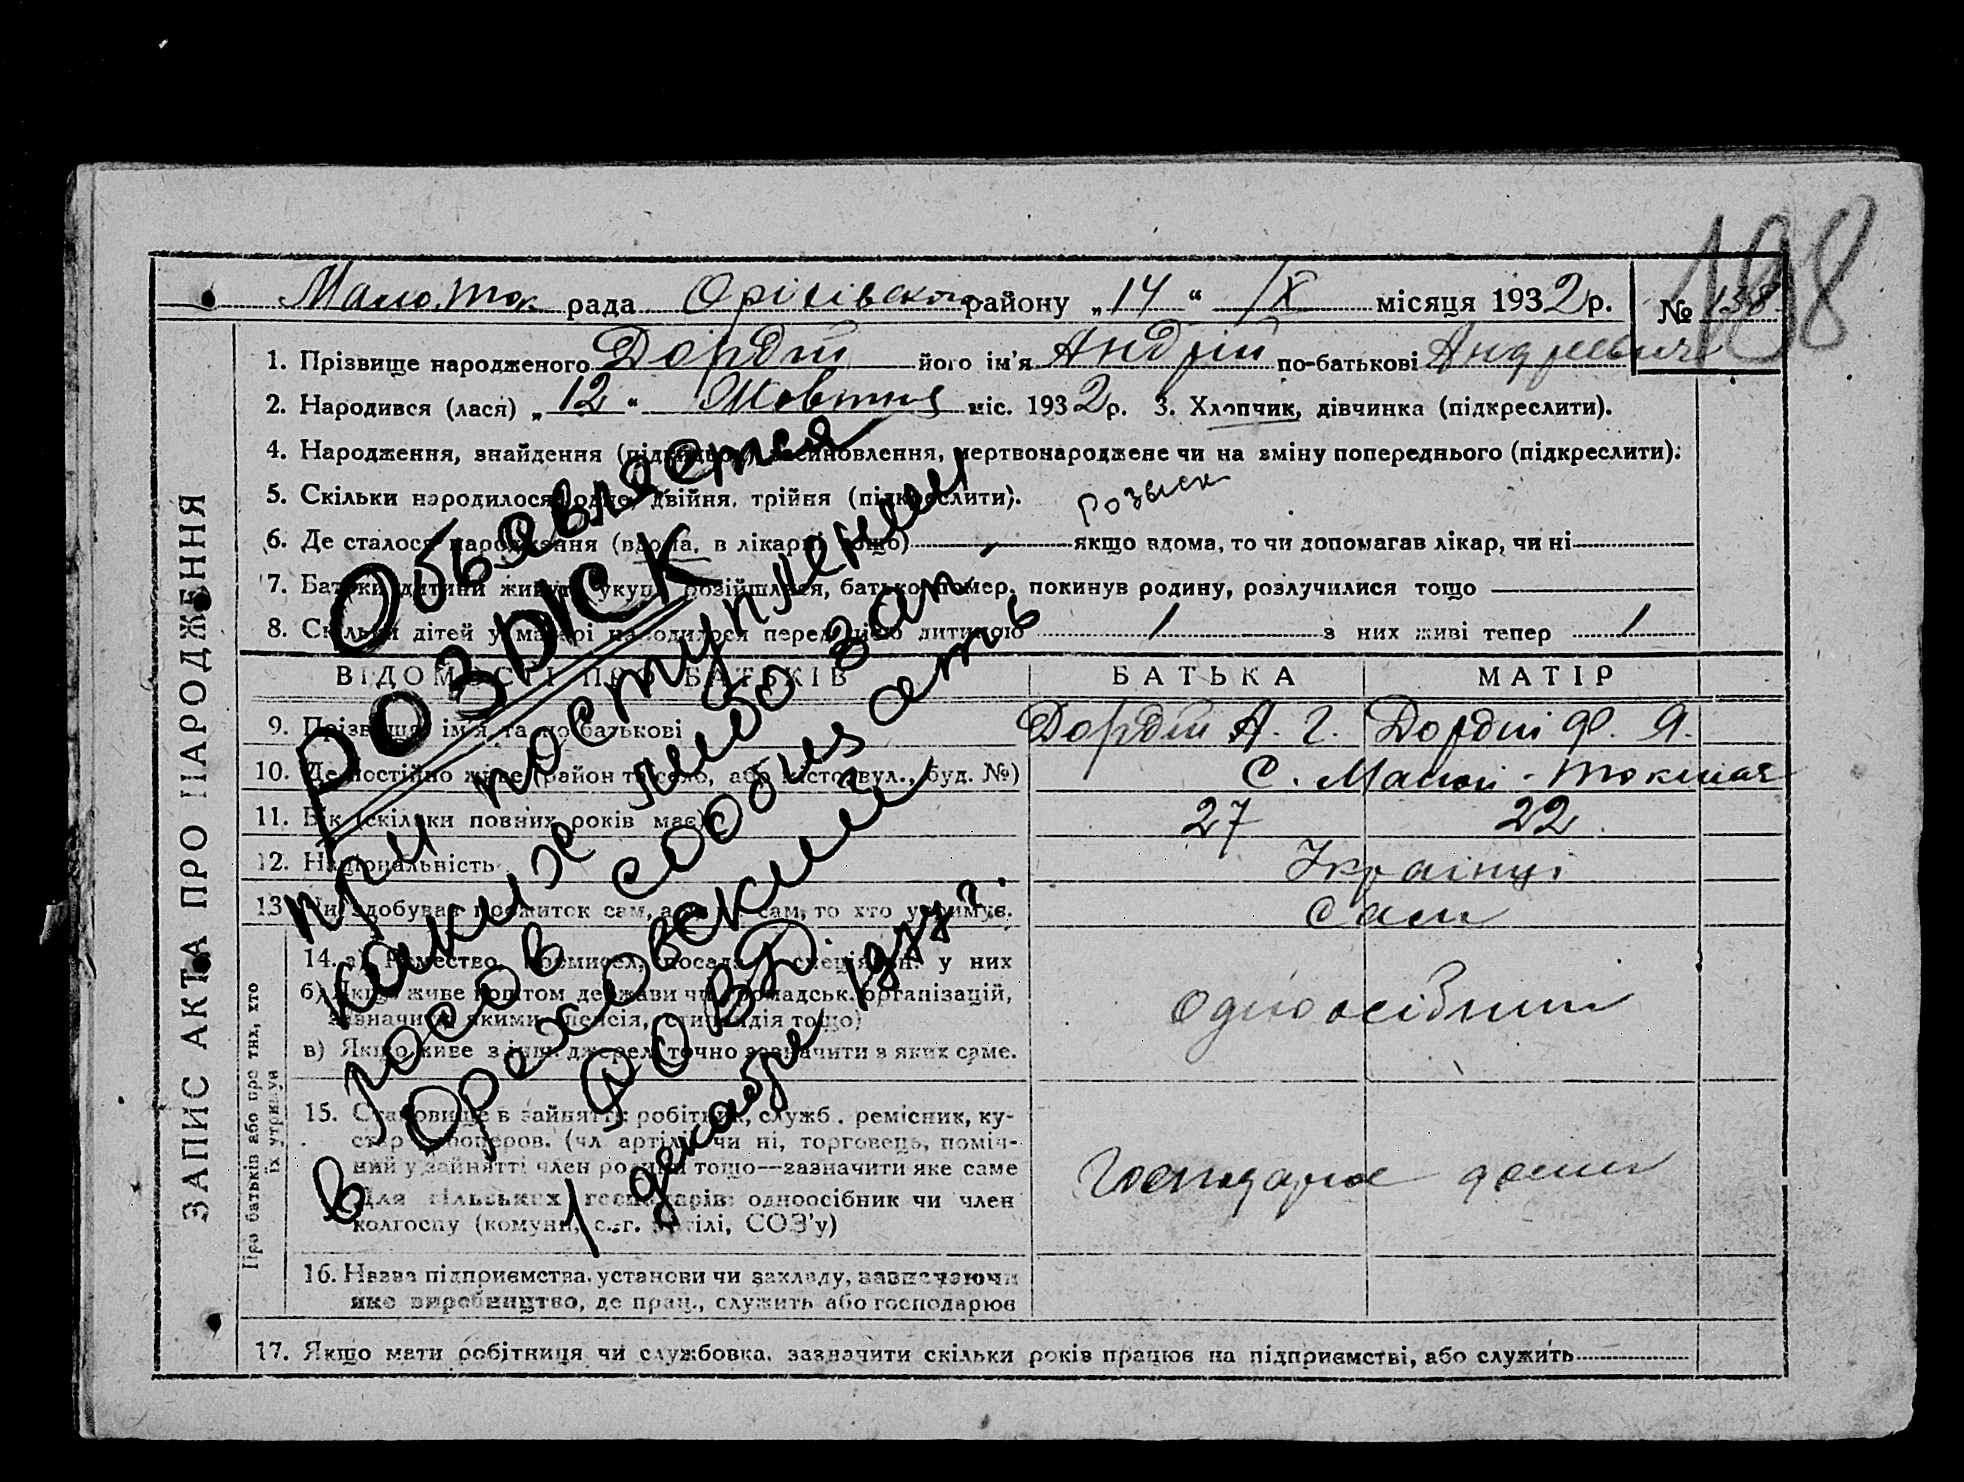 ЗАПИС АКТА ПРО НАРОДЖЕННЯ
Малоток рада Оріхівського району „14“ IX місяця 1932 р. № 138
198
1. Прізвище народженого Дордій його ім'я Андрій по-батькові Андреевич
2. Народився (лася) „12“ Жовтня міс. 1932 р. 3. Хлопчик, дівчинка (підкреслити).
4. Народження, знайдення усиновлення, мертвонароджене чи на зміну попереднього (підкреслити).
5. Скільки народилося одне, двійня, трійня (підкреслити).
Розыск
6. Де сталося народження (вдома, в лікарні тощо) якщо вдома, то чи допомагав лікар, чи ні
7. Батьки дитини живуть укупі, розійшлися, батько помер, покинув родину, розлучилися тощо
8. Скільки дітей у матері народилося перед цією дитиною 1 з них живі тепер 1
ВІДОМОСТІ ПРО БАТЬКІВ БАТЬКА МАТІР
9. Прізвище, ім'я та по батькові Дордій А. Г. Дордій Ф. Я.
10. Де постійно живе (район та село, або місто, вул., буд. №) С. Малой-Токмак
11. Вік (скільки повних років має) 27 22
12. Національність Українці
13. Чи здобував прожиток сам, а не сам, то хто утримує. Сам
Про батьків або про тих, хто їх утримує
14. а) Ремество, промисел, посада, спеціяльн. у них
б) Якщо живе коштом держави чи громадськ. організацій,
зазначити якими (пенсія, стипендія тощо)
в) Якщо живе з інш. джерел, точно зазначити з яких саме.
Одноосібник
15. Становище в занятті: робітник, служб., ремісник, ку-
стар кооперов. (чл. артілі) чи ні, торговець, поміч-
ний у занятті член родини тощо—зазначити яке саме
Для сільських господарів: одноосібник чи член
колгоспу (комуни, с.-г. артілі, СОЗ'у)
Господарює дома
16. Назва підприємства, установи чи закладу, зазначаючи
яке виробництво, де прац., служить або господарює
17. Якщо мати робітниця чи службовка, зазначити скільки років працює на підприємстві, або служить
Объявляется
розыск
при поступлении
каких либо зап-
росов сообщать
в Ореховский
РОВД.
1 декабря 1977 г.